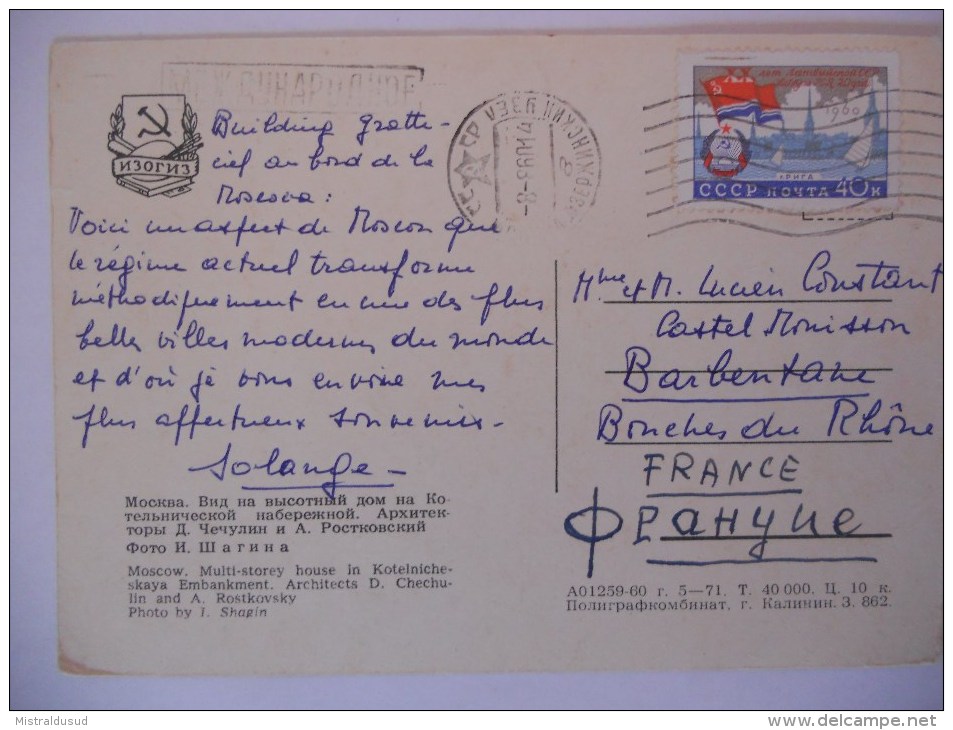 МЕЖДУНАРОДНОЕ
ИЗОГИЗ
Building gratte-
ciel au bord de la
Moscova :
Voici un aspect de Moscou que
le régime actuel transforme
méthodiquement en une des plus
belles villes modernes du monde
et d'où je vous envoie mes
plus affectueux souvenirs-
Solange-
Москва. Вид на высотный дом на Ко-
тельнической набережной. Архитек-
торы Д. Чечулин и А. Ростковский
Фото И. Шагина
Moscow. Multi-storey house in Kotelniche-
skaya Embankment. Architects D. Chechu-
lin and A. Rostkovsky
Photo by I. Shagin
СССР
1960
РИГА
СССР ПОЧТА 40 К
Mme et M. Lucien Constant
Castel Monisson
Barbentane
Bouches du Rhône
FRANCE
Франуие
А01259-60 г. 5—71. Т. 40 000. Ц. 10 к.
Полиграфкомбинат, г. Калинин. З. 862.
Mistraldusud
www.delcampe.net